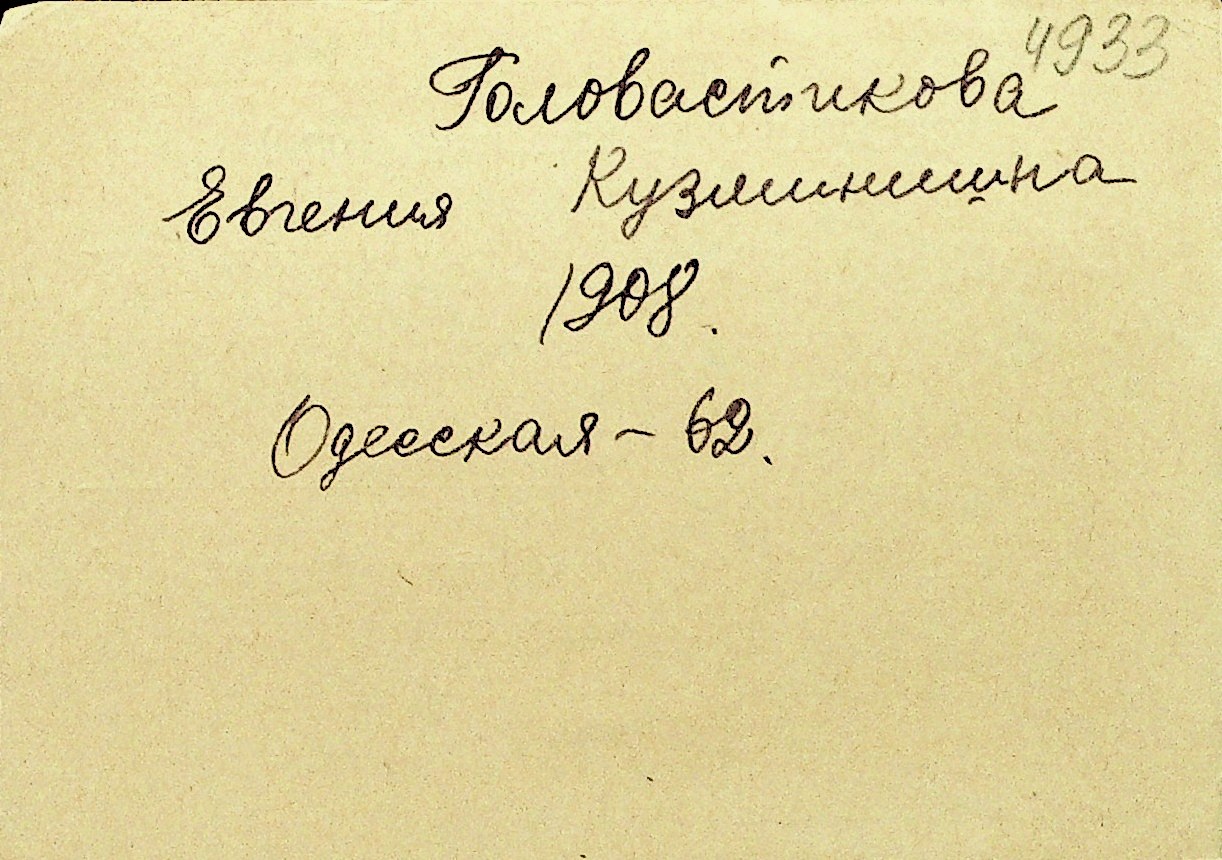 4933
Головастикова
Евгения Кузминишна
1908.
Одесская - 62.